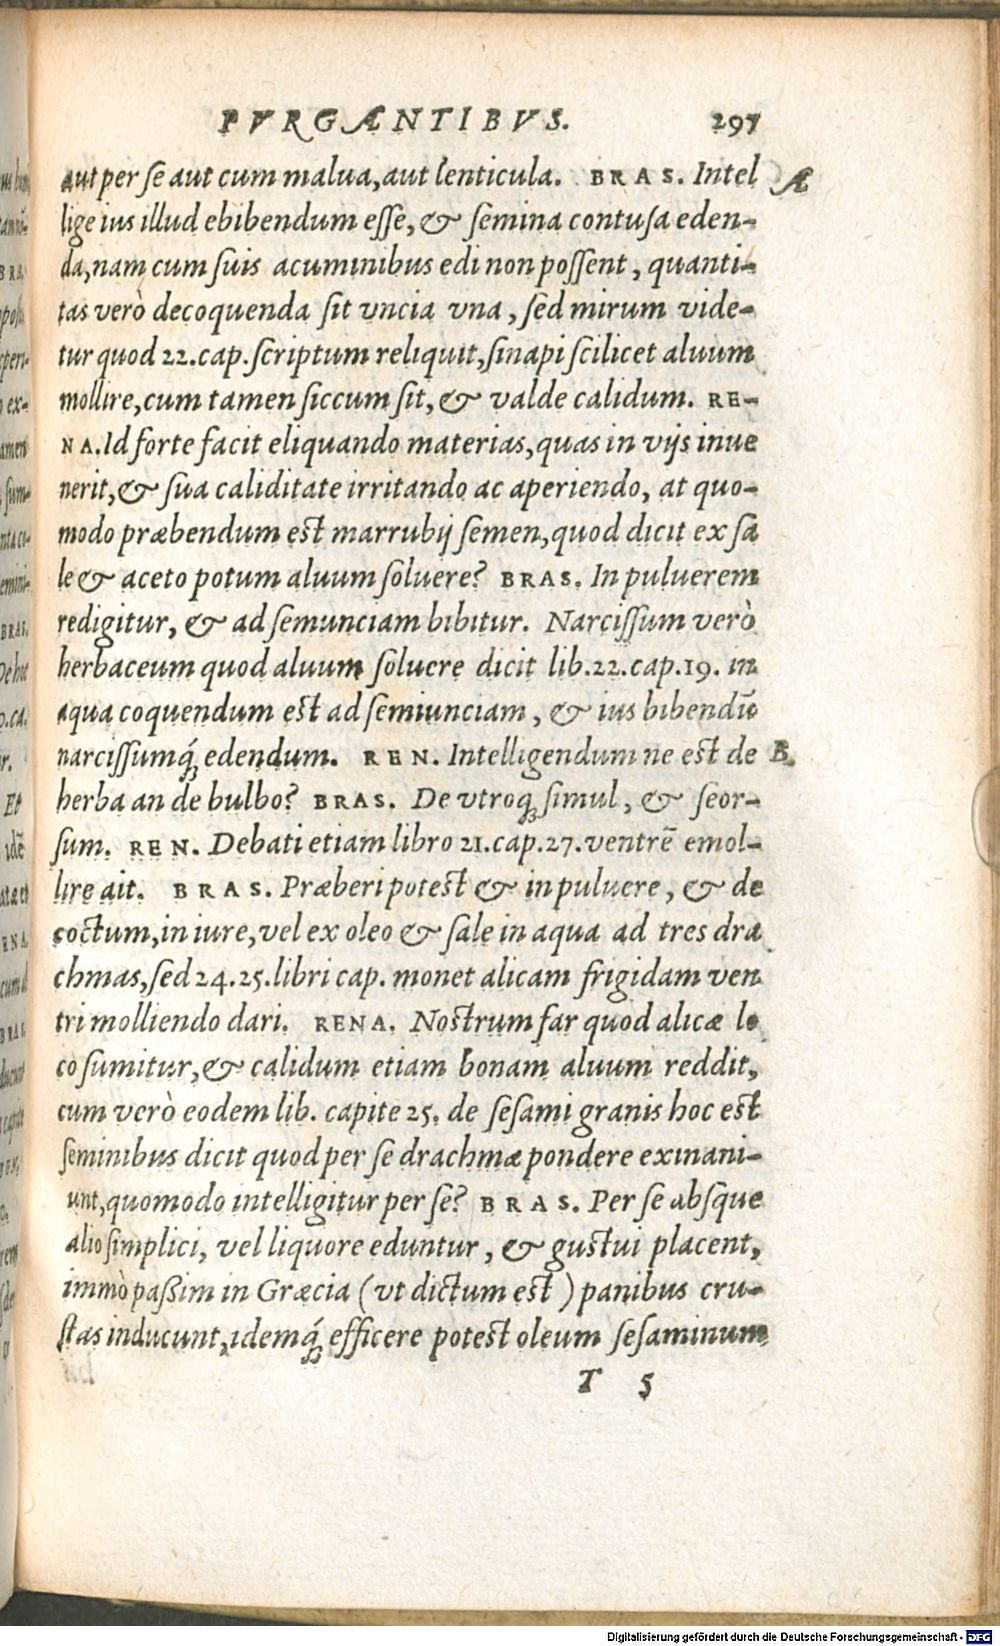 PVRGANTIBVS. 297
aut per se aut cum malua, aut lenticula. BRAS. Intel A
lige ius illud ebibendum esse, & semina contusa eden-
da, nam cum suis acuminibus edi non possent, quanti-
tas verò decoquenda sit vncia vna, sed mirum vide-
tur quod 22. cap. scriptum reliquit, sinapi scilicet aluum
mollire, cum tamen siccum sit, & valde calidum. RE-
NA. Id forte facit eliquando materias, quas in vijs inue
nerit, & sua caliditate irritando ac aperiendo, at quo-
modo præbendum est marrubij semen, quod dicit ex sa
le & aceto potum aluum soluere? BRAS. In puluerem
redigitur, & ad semunciam bibitur. Narcissum verò
herbaceum quod aluum soluere dicit lib. 22. cap. 19. in
aqua coquendum est ad semiunciam, & ius bibendū
narcissumq́; edendum. REN. Intelligendum ne est de B
herba an de bulbo? BRAS. De vtroq; simul, & seor-
sum. REN. Debati etiam libro 21. cap. 27. ventrē emol-
lire ait. BRAS. Præberi potest & in puluere, & de
coctum, in iure, vel ex oleo & sale in aqua ad tres dra
chmas, sed 24. 25. libri cap. monet alicam frigidam ven
tri molliendo dari. RENA. Nostrum far quod alicæ lo
co sumitur, & calidum etiam bonam aluum reddit,
cum verò eodem lib. capite 25. de sesami granis hoc est
seminibus dicit quod per se drachmæ pondere exinani-
unt, quomodo intelligitur per se? BRAS. Per se absque
alio simplici, vel liquore eduntur, & gustui placent,
immò passim in Græcia (vt dictum est) panibus cru-
stas inducunt, idemq́; efficere potest oleum sesaminum
T 5
Digitalisierung gefördert durch die Deutsche Forschungsgemeinschaft - DFG